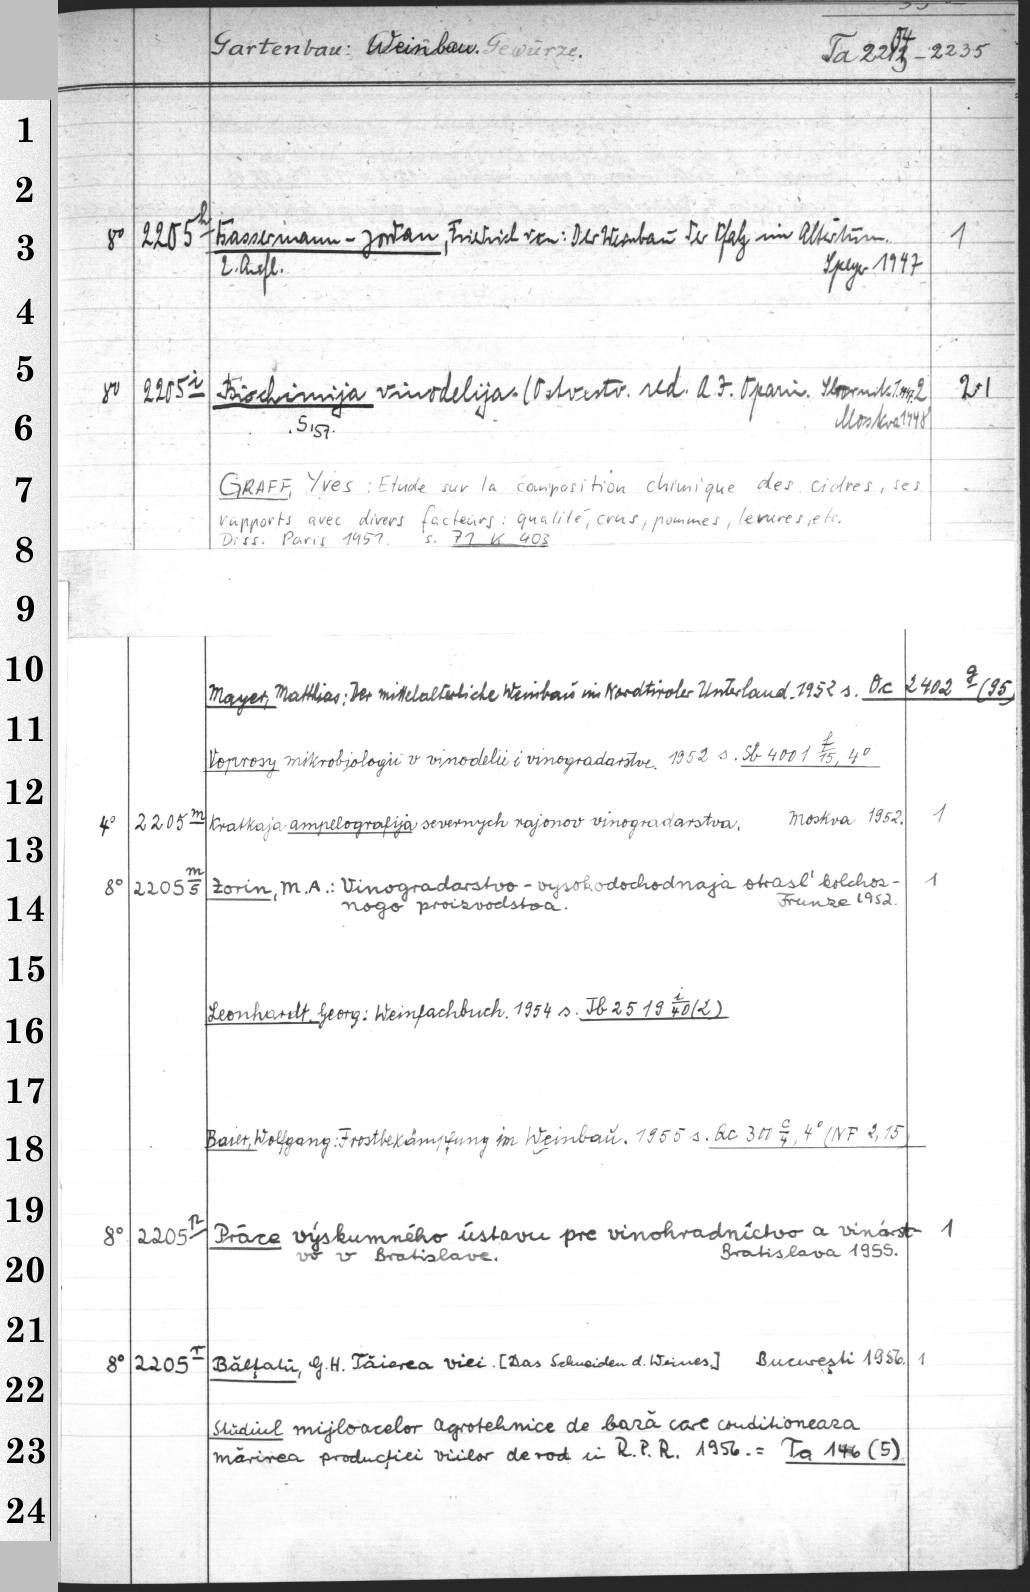 Gartenbau: Weinbau. Gewürze. Ta 2204-2235
1
2
8° 2205 h Bassermann-Jordan, Friedrich von: Der Weinbau der Pfalz im Altertum. 1
3
2. Aufl. Speyer 1947
4
5
8° 2205 i Biochimija vinodelija. (Otvetstv. red. A. I. Oparin. Sbornik 1. 2 2+1
Moskva 1948
6
7
GRAFF, Yves: Etude sur la composition chimique des cidres, ses
rapports avec divers facteurs: qualité, crus, pommes, levures, etc.
Diss. Paris 1951. s. 71 K 403
8
9
10
Mayer, Matthias: Der mittelalterliche Weinbau im Nordtiroler Unterland. 1952 s. Oc 2402 g (95)
11
Voprosy mikrobiologii v vinodelii i vinogradarstve. 1952 s. Sb 4001 f/15, 4°
12
4° 2205 m Kratkaja ampelografija severnych rajonov vinogradarstva. Moskva 1952. 1
13
8° 2205 m/5 Zorin, M.A.: Vinogradarstvo - vysokodochodnaja otrasl' kolchoz- 1
nogo proizvodstva. Frunze 1952.
14
15
Leonhardt, Georg: Weinfachbuch. 1954 s. Tb 2519 i/40 (2)
16
17
18
Baier, Wolfgang: Frostbekämpfung im Weinbau. 1955 s. Qc 300 c/4, 4° (NF 2,15)
19
8° 2205 n Práce výskumného ústavu pre vinohradníctvo a vinárst- 1
vo v Bratislave. Bratislava 1955.
20
21
8° 2205 r Bălţatu, G.H. Tăierea viei. [Das Schneiden d. Weines.] Bucureşti 1956. 1
22
Studiul mijloacelor agrotehnice de bază care conditioneaza
23
mărirea producţiei viilor de rod in R.P.R. 1956. = Ta 146 (5)
24